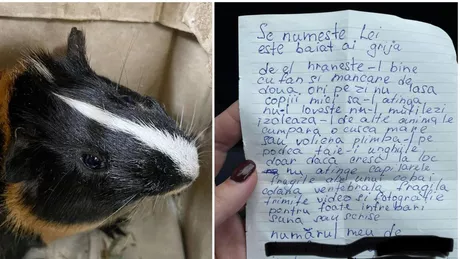 Se numeste Lei
este baiat ai grija
de el hraneste-l bine
cu fan si mancare de
doua ori pe zi nu lasa
copiii mici sa-l atinga
nu-l loveste nu-l mutilezi
izoleaza-l de alte animale
cumpara o cusca mare
sau voliera plimba-l pe
podea taie-i unghiile
doar daca cresc la loc
nu atinge capilarele
fragile ale unui cobai
colana vertebrala fragila
trimite video si fotografie
pentru toate intrebari
suna sau scrise
numărul meu de